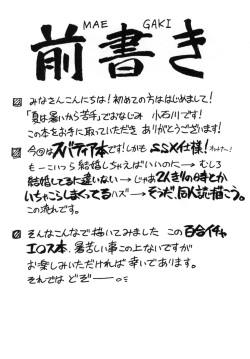 MAE GAKI
前書き
みなさんこんにちは！初めての方ははじめまして！
「夏は暑いから苦手」でおなじみ 小石川です！
この本をお手に取っていただき ありがとうございます！
今回はスパティア本です！しかもSSX仕様！
もーこいつら結婚しちゃえばいいのに→むしろ
結婚してるに違いない→じゃあ2人きりの時とか
いちゃこらしまくってるハズ→そうだ、同人誌描こう。
この流れです。
そんなこんなで描いてみました この百合イチャ
エロス本、暑苦しい事この上ないですが
お楽しみいただければ幸いであります。
それでは どぞー――。=3